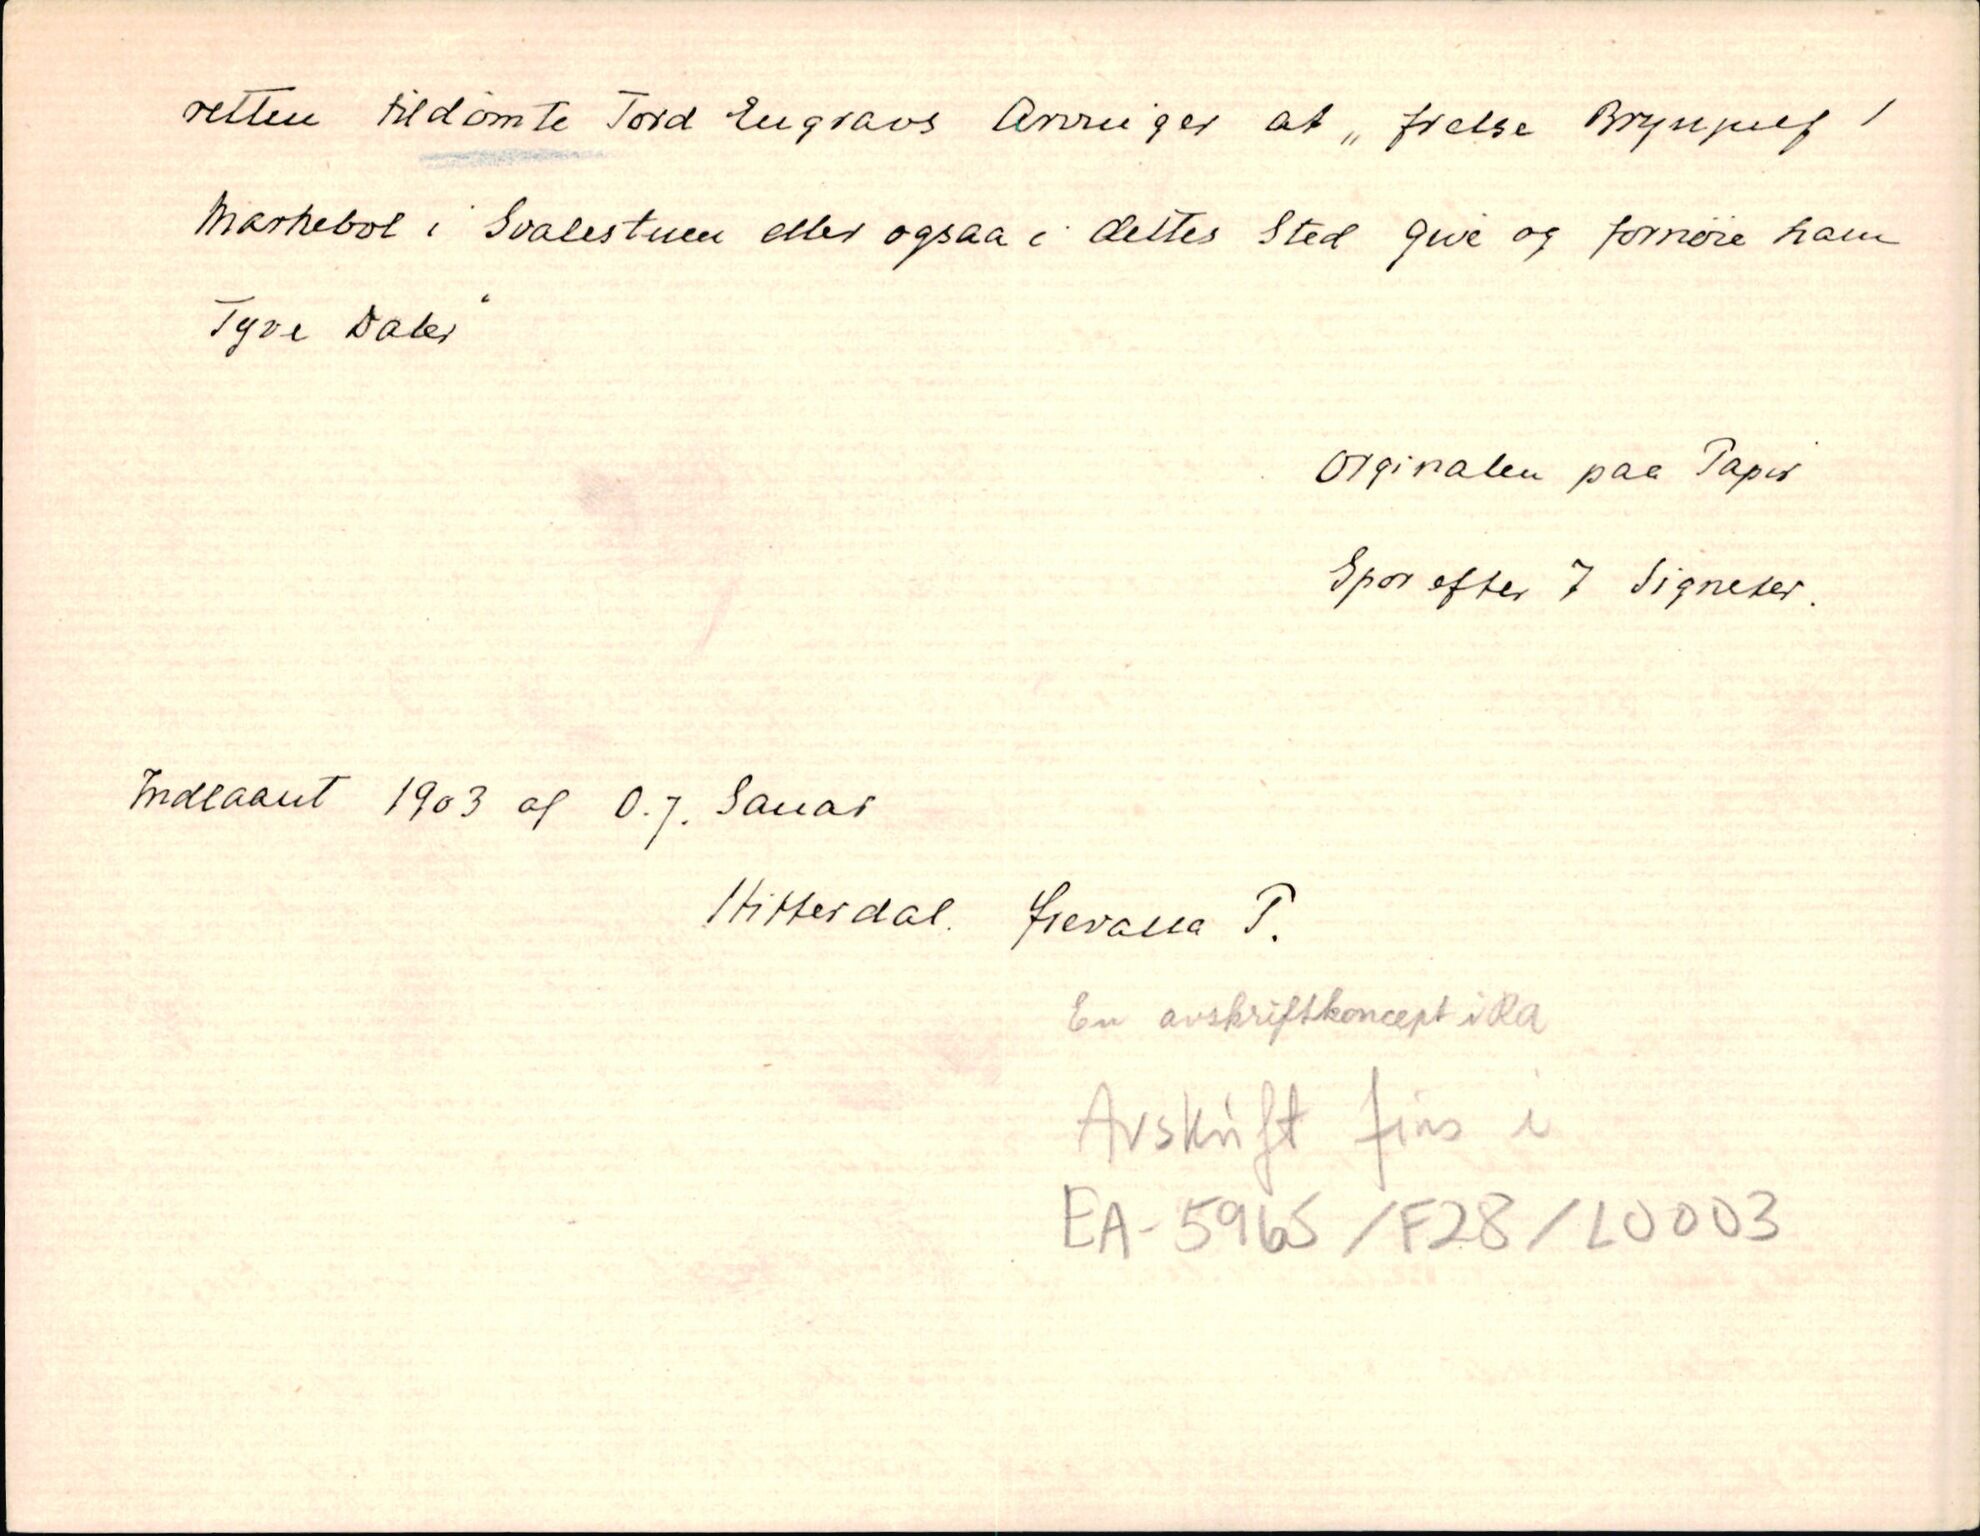 retten tildömte Tord Engravs Arvinger at „frelse Brynjulf 1
Markebol i Svalestuen eller ogsaa i dettes Sted give og fornöie ham
Tyve Daler“
Orginalen paa Papir
Spor efter 7 Signeter.
Indlaant 1903 af O. J. Sanar
Hitterdal. T.
En avskriftkoncept i RA
Avskrift fins i
EA-5965/F28/L0003